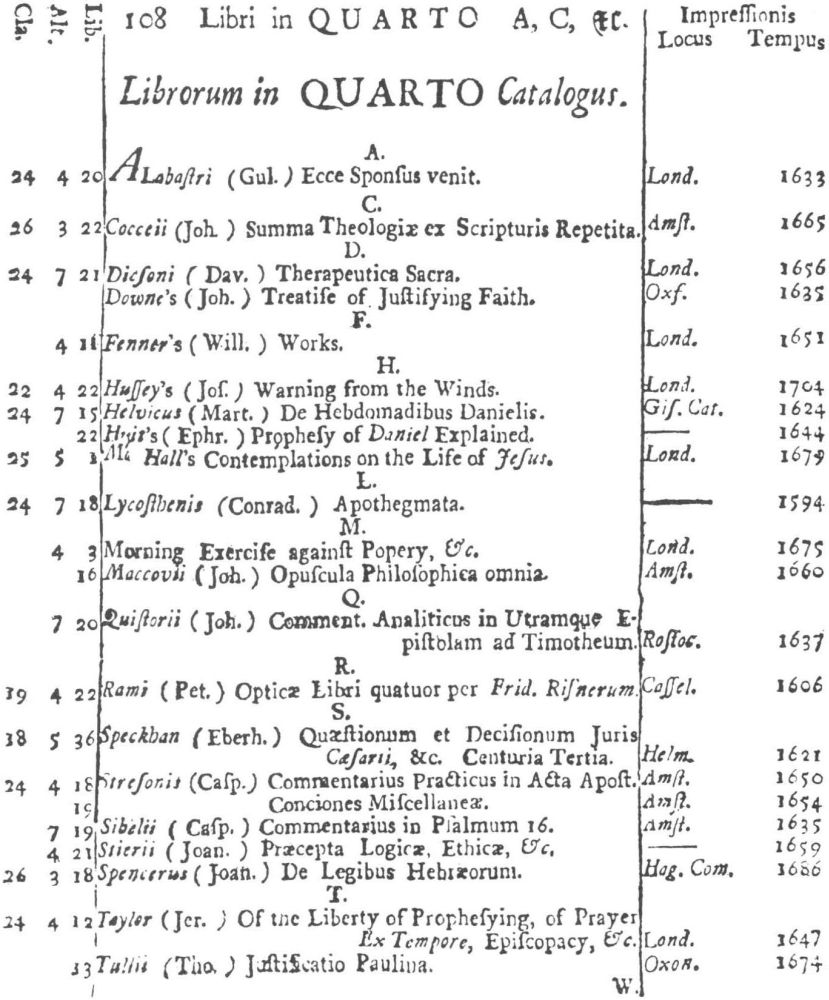 Cla. Alt. Lib. 108 Libri in QUARTO A, C, &c. Impreſſionis
Locus Tempus
Librorum in QUARTO Catalogus.
A.
24 4 20 ALabaſtri (Gul.) Ecce Sponſus venit. Lond. 1633
C.
26 3 22 Cocceii (Joh.) Summa Theologiæ ex Scripturis Repetita. Amſt. 1665
D.
24 7 21 Dicſoni (Dav.) Therapeutica Sacra. Lond. 1656
Downe's (Joh.) Treatiſe of Juſtifying Faith. Oxf. 1635
F.
4 11 Fenner's (Will.) Works. Lond. 1651
H.
22 4 22 Huſſey's (Joſ.) Warning from the Winds. Lond. 1704
24 7 15 Helvicus (Mart.) De Hebdomadibus Danielis. Giſ. Cat. 1624
22 Huit's (Ephr.) Propheſy of Daniel Explained. —— 1644
25 5 1 Hall's Contemplations on the Life of Jeſus. Lond. 1679
L.
24 7 18 Lycoſthenis (Conrad.) Apothegmata. —— 1594
M.
4 3 Morning Exerciſe againſt Popery, &c. Lond. 1675
16 Maccovii (Joh.) Opuſcula Philoſophica omnia. Amſt. 1660
Q.
7 20 Quiſtorii (Joh.) Comment. Analiticus in Utramque E-
piſtolam ad Timotheum. Roſtoc. 1637
R.
19 4 22 Rami (Pet.) Opticæ Libri quatuor per Frid. Riſnerum. Caſſel. 1606
S.
18 5 36 Speckhan (Eberh.) Quæſtionum et Deciſionum Juris
Cæſarii, &c. Centuria Tertia. Helm. 1621
24 4 18 Streſonis (Caſp.) Commentarius Practicus in Acta Apoſt. Amſt. 1650
19 Conciones Miſcellaneæ. Amſt. 1654
7 19 Sibelii (Caſp.) Commentarius in Pſalmum 16. Amſt. 1635
4 21 Stierii (Joan.) Præcepta Logicæ, Ethicæ, &c. —— 1659
26 3 18 Spencerus (Joan.) De Legibus Hebræorum. Hag. Com. 1686
T.
24 4 12 Taylor (Jer.) Of the Liberty of Propheſying, of Prayer
Ex Tempore, Epiſcopacy, &c. Lond. 1647
13 Tullii (Tho.) Juſtificatio Paulina. Oxon. 1674
W.